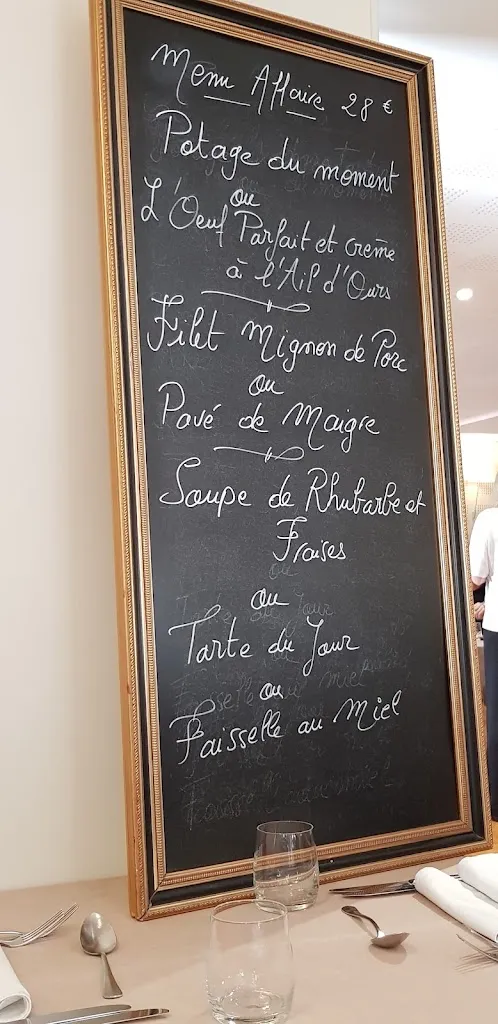 Menu Affaire 28 €
Potage du moment
ou
L'Oeuf Parfait et crème
à l'Ail d'Ours
Filet Mignon de Porc
ou
Pavé de Maigre
Soupe de Rhubarbe et
Fraises
ou
Tarte du Jour
ou
Faisselle au Miel